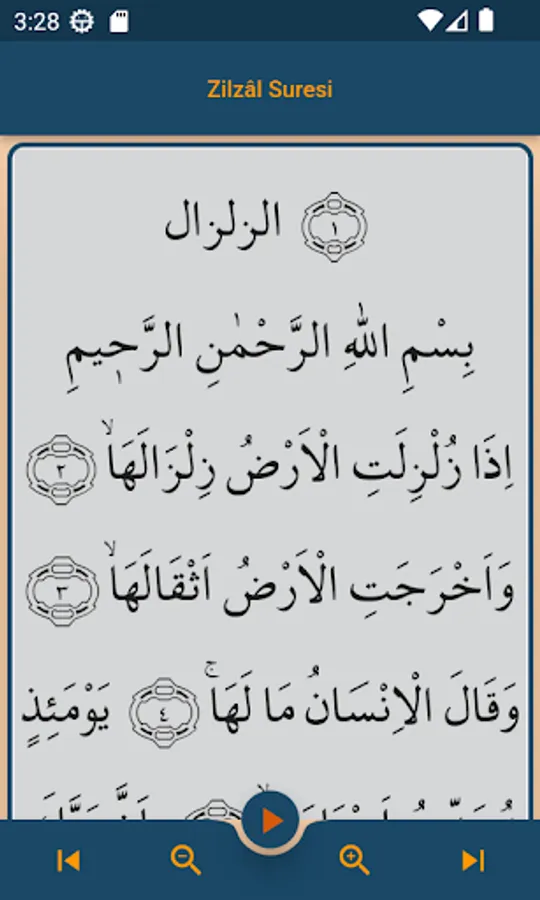 3:28
Zilzâl Suresi
الزلزال ١
بِسْمِ اللهِ الرَّحْمٰنِ الرَّح۪يمِ
اِذَا زُلْزِلَتِ الْاَرْضُ زِلْزَالَهَاۙ ٢
وَاَخْرَجَتِ الْاَرْضُ اَثْقَالَهَاۙ ٣
وَقَالَ الْاِنْسَانُ مَا لَهَاۚ ٤ يَوْمَئِذٍ